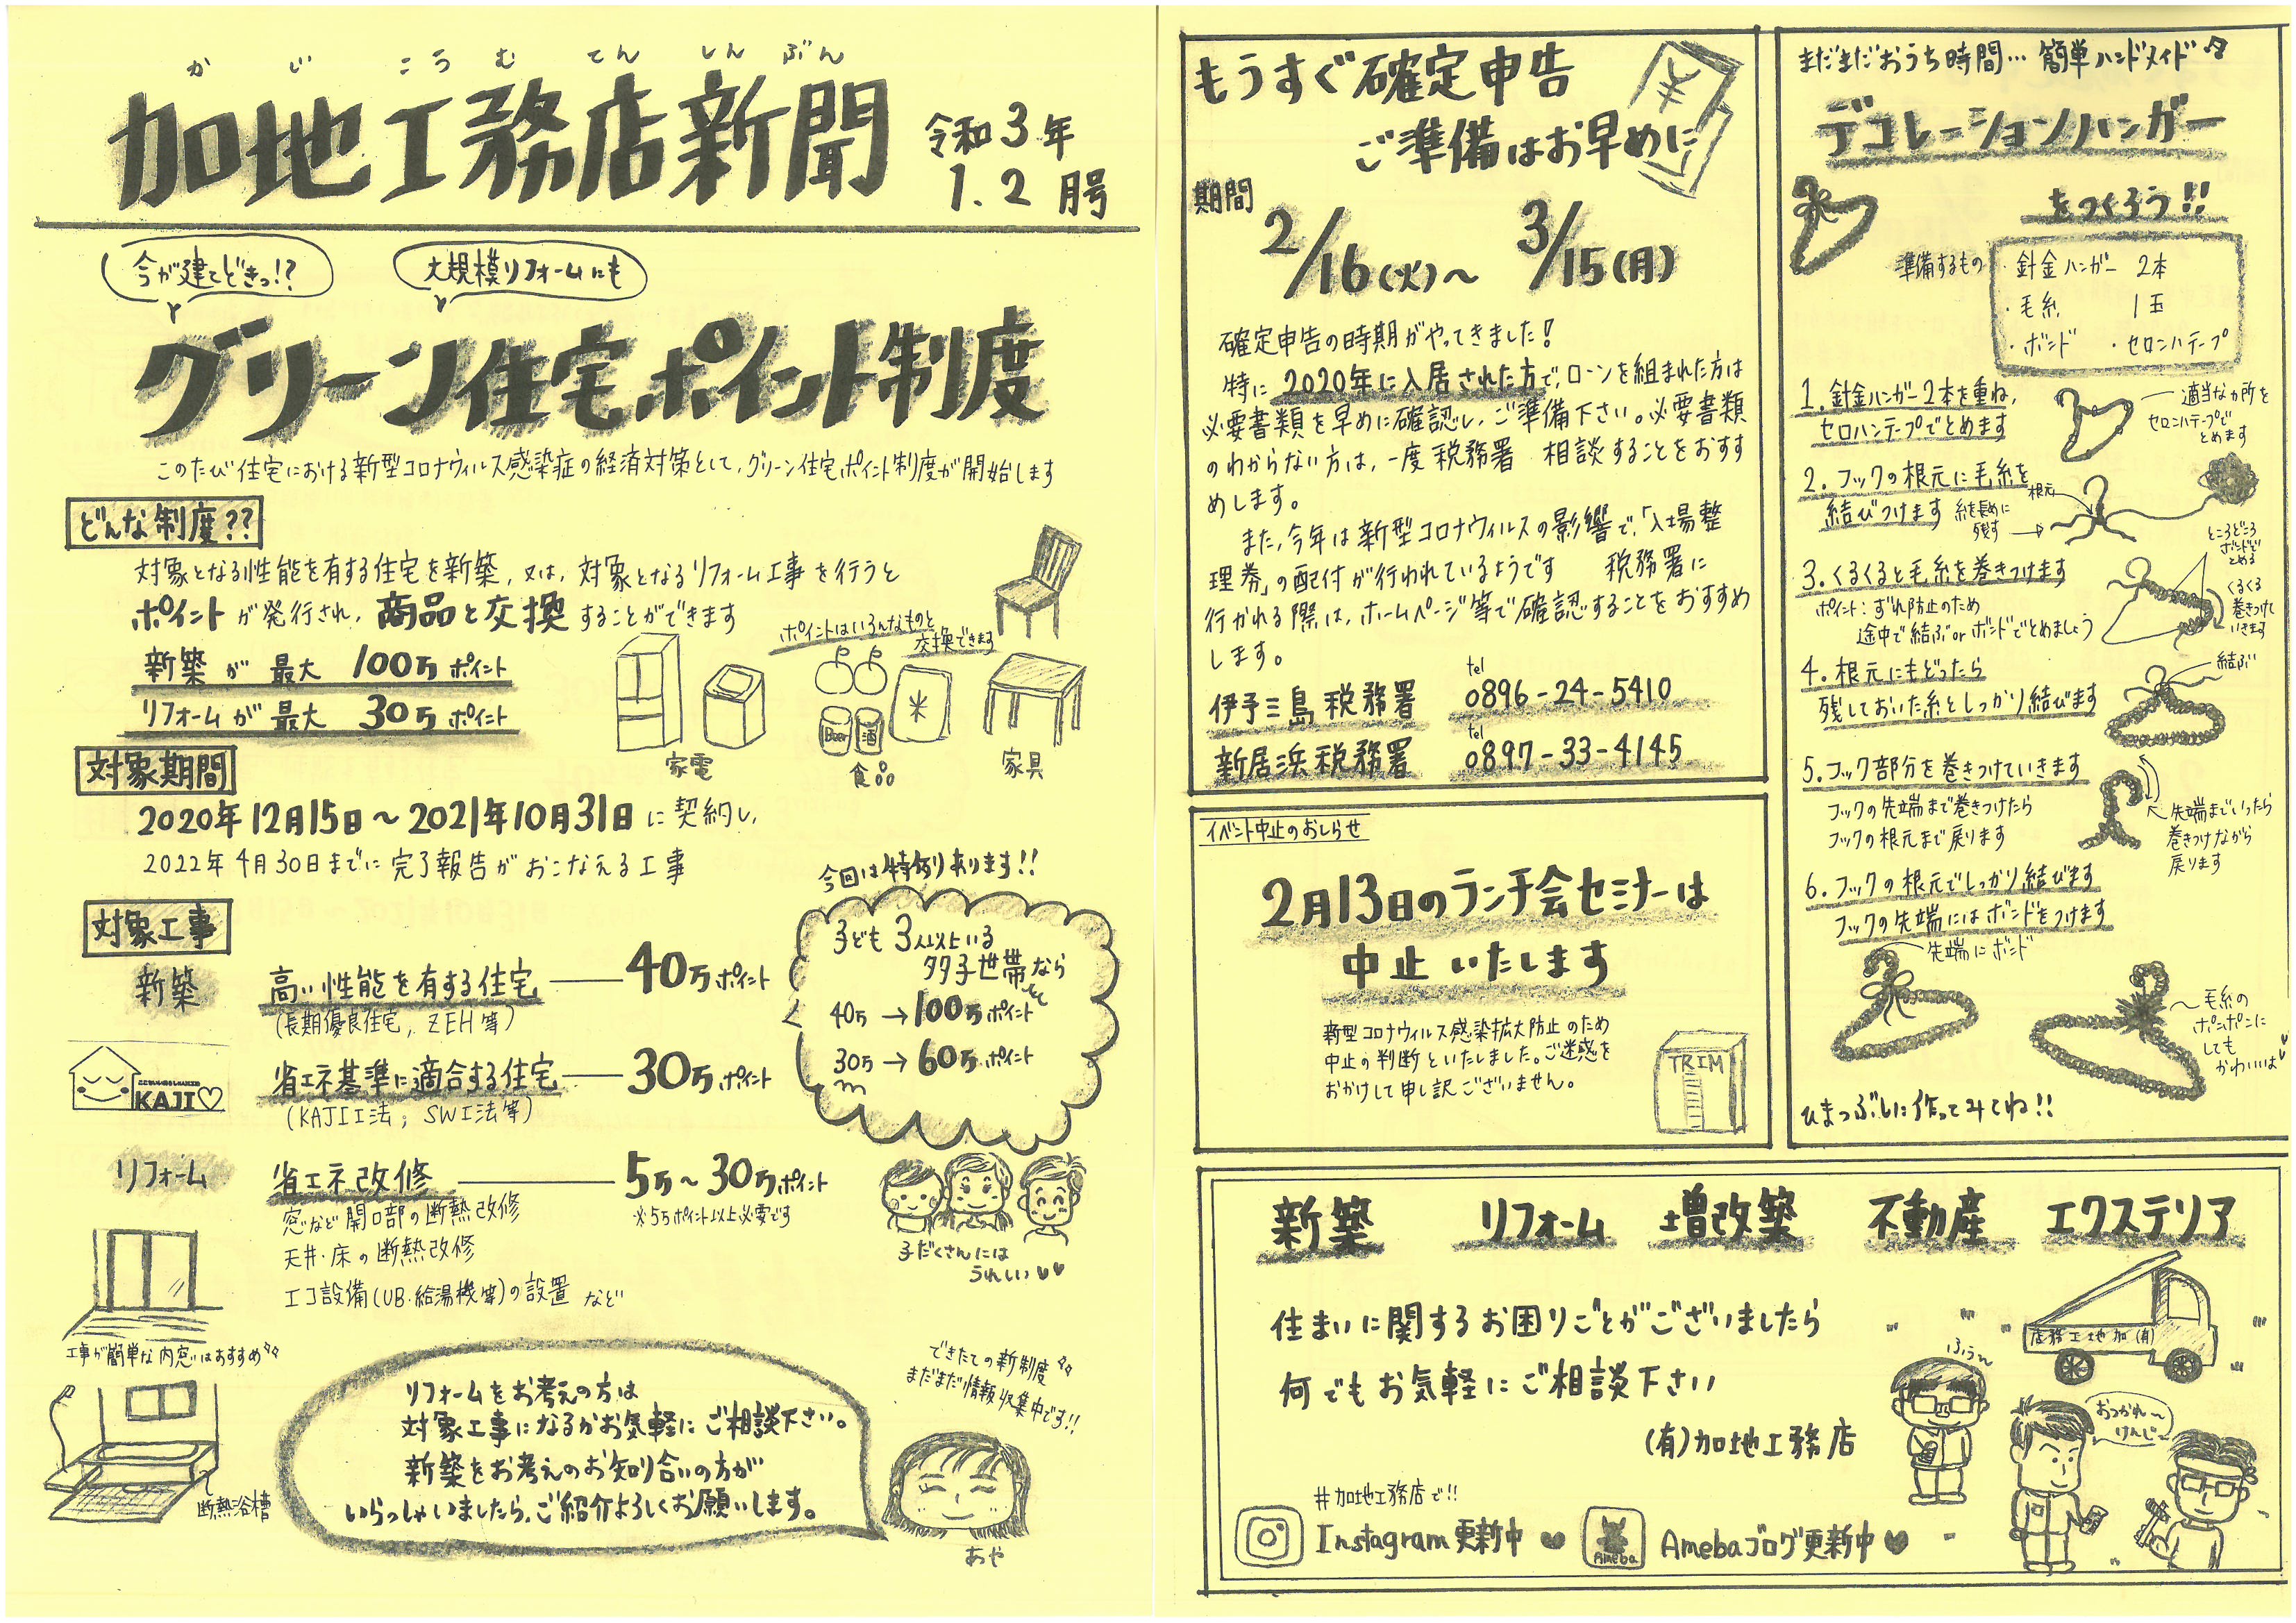 かじこうむてんしんぶん
加地工務店新聞
令和3年
1.2月号
今が建てどきっ!?
大規模リフォームにも
グリーン住宅ポイント制度
このたび住宅における新型コロナウィルス感染症の経済対策として、グリーン住宅ポイント制度が開始します
どんな制度??
対象となる性能を有する住宅を新築、又は、対象となるリフォーム工事を行うと
ポイントが発行され、商品と交換することができます
新築が最大 100万ポイント
リフォームが最大 30万ポイント
ポイントはいろんなものと
交換できます
家電
Beer
酒
米
食品
家具
対象期間
2020年12月15日〜2021年10月31日に契約し、
2022年4月30日までに完了報告がおこなえる工事
対象工事
新築
高い性能を有する住宅 40万ポイント
(長期優良住宅、ZEH等)
省エネ基準に適合する住宅 30万ポイント
(KAJI工法、SW工法等)
KAJI♡
今回は特例あります!!
子ども3人以上いる
多子世帯なら
40万→100万ポイント
30万→60万ポイント
リフォーム
省エネ改修 5万〜30万ポイント
※5万ポイント以上必要です
窓など開口部の断熱改修
天井・床の断熱改修
エコ設備(UB・給湯機等)の設置 など
子だくさんには
うれしい♥♥
工事が簡単な内窓はおすすめ
断熱浴槽
リフォームをお考えの方は
対象工事になるかお気軽にご相談下さい。
新築をお考えのお知り合いの方が
いらっしゃいましたら、ご紹介よろしくお願いします。
できたての新制度
まだまだ情報収集中です!!
あや
もうすぐ確定申告
ご準備はお早めに
¥
期間
2/16(火)〜 3/15(月)
確定申告の時期がやってきました!
特に2020年に入居された方で、ローンを組まれた方は
必要書類を早めに確認し、ご準備下さい。必要書類
のわからない方は、一度税務署 相談することをおすす
めします。
また、今年は新型コロナウィルスの影響で、「入場整
理券」の配付が行われているようです 税務署に
行かれる際は、ホームページ等で確認することをおすすめ
します。
伊予三島税務署 tel 0896-24-5410
新居浜税務署 tel 0897-33-4145
イベント中止のおしらせ
2月13日のランチ会セミナーは
中止いたします
新型コロナウィルス感染拡大防止のため
中止の判断といたしました。ご迷惑を
おかけして申し訳ございません。
TRIM
まだまだおうち時間…簡単ハンドメイド♫
デコレーションハンガー
をつくろう!!
準備するもの
・針金ハンガー 2本
・毛糸 1玉
・ボンド ・セロハンテープ
1. 針金ハンガー2本を重ね、
セロハンテープでとめます
適当なカ所を
セロハンテープで
とめます
2. フックの根元に毛糸を
結びつけます
根元
糸を長めに
残す
3. くるくると毛糸を巻きつけます
ポイント:ずれ防止のため
途中で結ぶorボンドでとめましょう
ところどころ
ボンドで
とめる
くるくる
巻きつけて
いきます
4. 根元にもどったら
残しておいた糸としっかり結びます
結ぶ
5. フック部分を巻きつけていきます
フックの先端まで巻きつけたら
フックの根元まで戻ります
先端までいったら
巻きつけながら
戻ります
6. フックの根元でしっかり結びます
フックの先端にはボンドをつけます
先端にボンド
毛糸の
ポンポンに
しても
かわいいよ♥
ひまつぶしに作ってみてね!!
新築 リフォーム 増改築 不動産 エクステリア
住まいに関するお困りごとがございましたら
何でもお気軽にご相談下さい
(有)加地工務店
店務工地加(有)
ふうん
おつかれ〜
けんじ〜
#加地工務店で!!
Instagram更新中♥
Ameba
Amebaブログ更新中♥